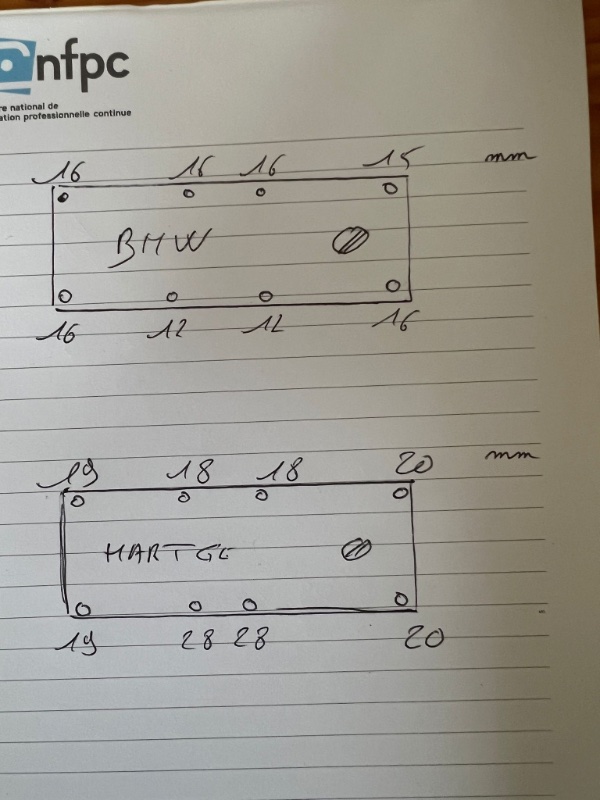 nfpc
re national de
ation professionnelle continue
16 16 16 15 mm
BMW
16 12 12 16
19 18 18 20 mm
HARTGE
19 28 28 20